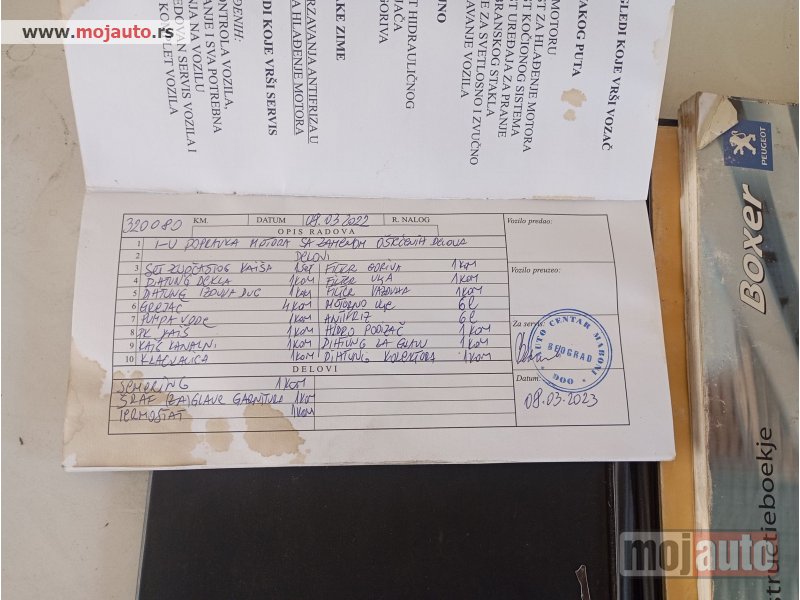 www.mojauto.rs
GLEDI KOJE VRŠI VOZAČ
MOTORU
ST ZA HLAĐENJE MOTORA
ST KOČIONOG SISTEMA
ST UREĐAJA ZA PRANJE
BRANSKOG STAKLA
JE ZA SVETLOSNO I ZVUČNO
AVANJE VOZILA
TAKOG PUTA
T HIDRAULIČNOG
JAČA
GORIVA
AKE ZIME
RZAVANJA ANTIFRIZA U
A HLAĐENJE MOTORA
DI KOJE VRŠI SERVIS
ONTROLA VOZILA,
RANJE I SVA POTREBNA
NJA NA VOZILU
EDOVAN SERVIS VOZILA I
KOMPLET VOZILA
320080 KM. DATUM 08.03.2022 R. NALOG
OPIS RADOVA
1 POPRAVKA MOTORA SA ZAMENOM OŠTEĆENIH DELOVA
2 DELOVI
3 SET ZUPČASTOG KAIŠA 1 SET FILTER GORIVA 1 KOM
4 DIHTUNG DEKLA 1 KOM FILTER ULJA 1 KOM
5 DIHTUNG 1 KOM FILTER VAZDUHA 1 KOM
6 GREJAČ 4 KOM MOTORNO ULJE 6 L
7 PUMPA VODE 1 KOM ANTIFRIZ 6 L
8 PK KAIŠ 1 KOM HIDRO PODIZAČ 1 KOM
9 KAIŠ KANALNI 1 KOM DIHTUNG ZA GLAVU 1 KOM
10 KLACKALICA 1 KOM DIHTUNG KOLEKTORA 1 KOM
DELOVI
SEMERING 1 KOM
ŠRAF (ZA) GLAVE GARNITURA 1 KOM
TERMOSTAT 1 KOM
Vozilo predao:
Vozilo preuzeo:
Za servis:
AUTO CENTAR MABONI
BEOGRAD
DOO
Datum:
08.03.2023
PEUGEOT
BOXER
structieboekje
mojauto